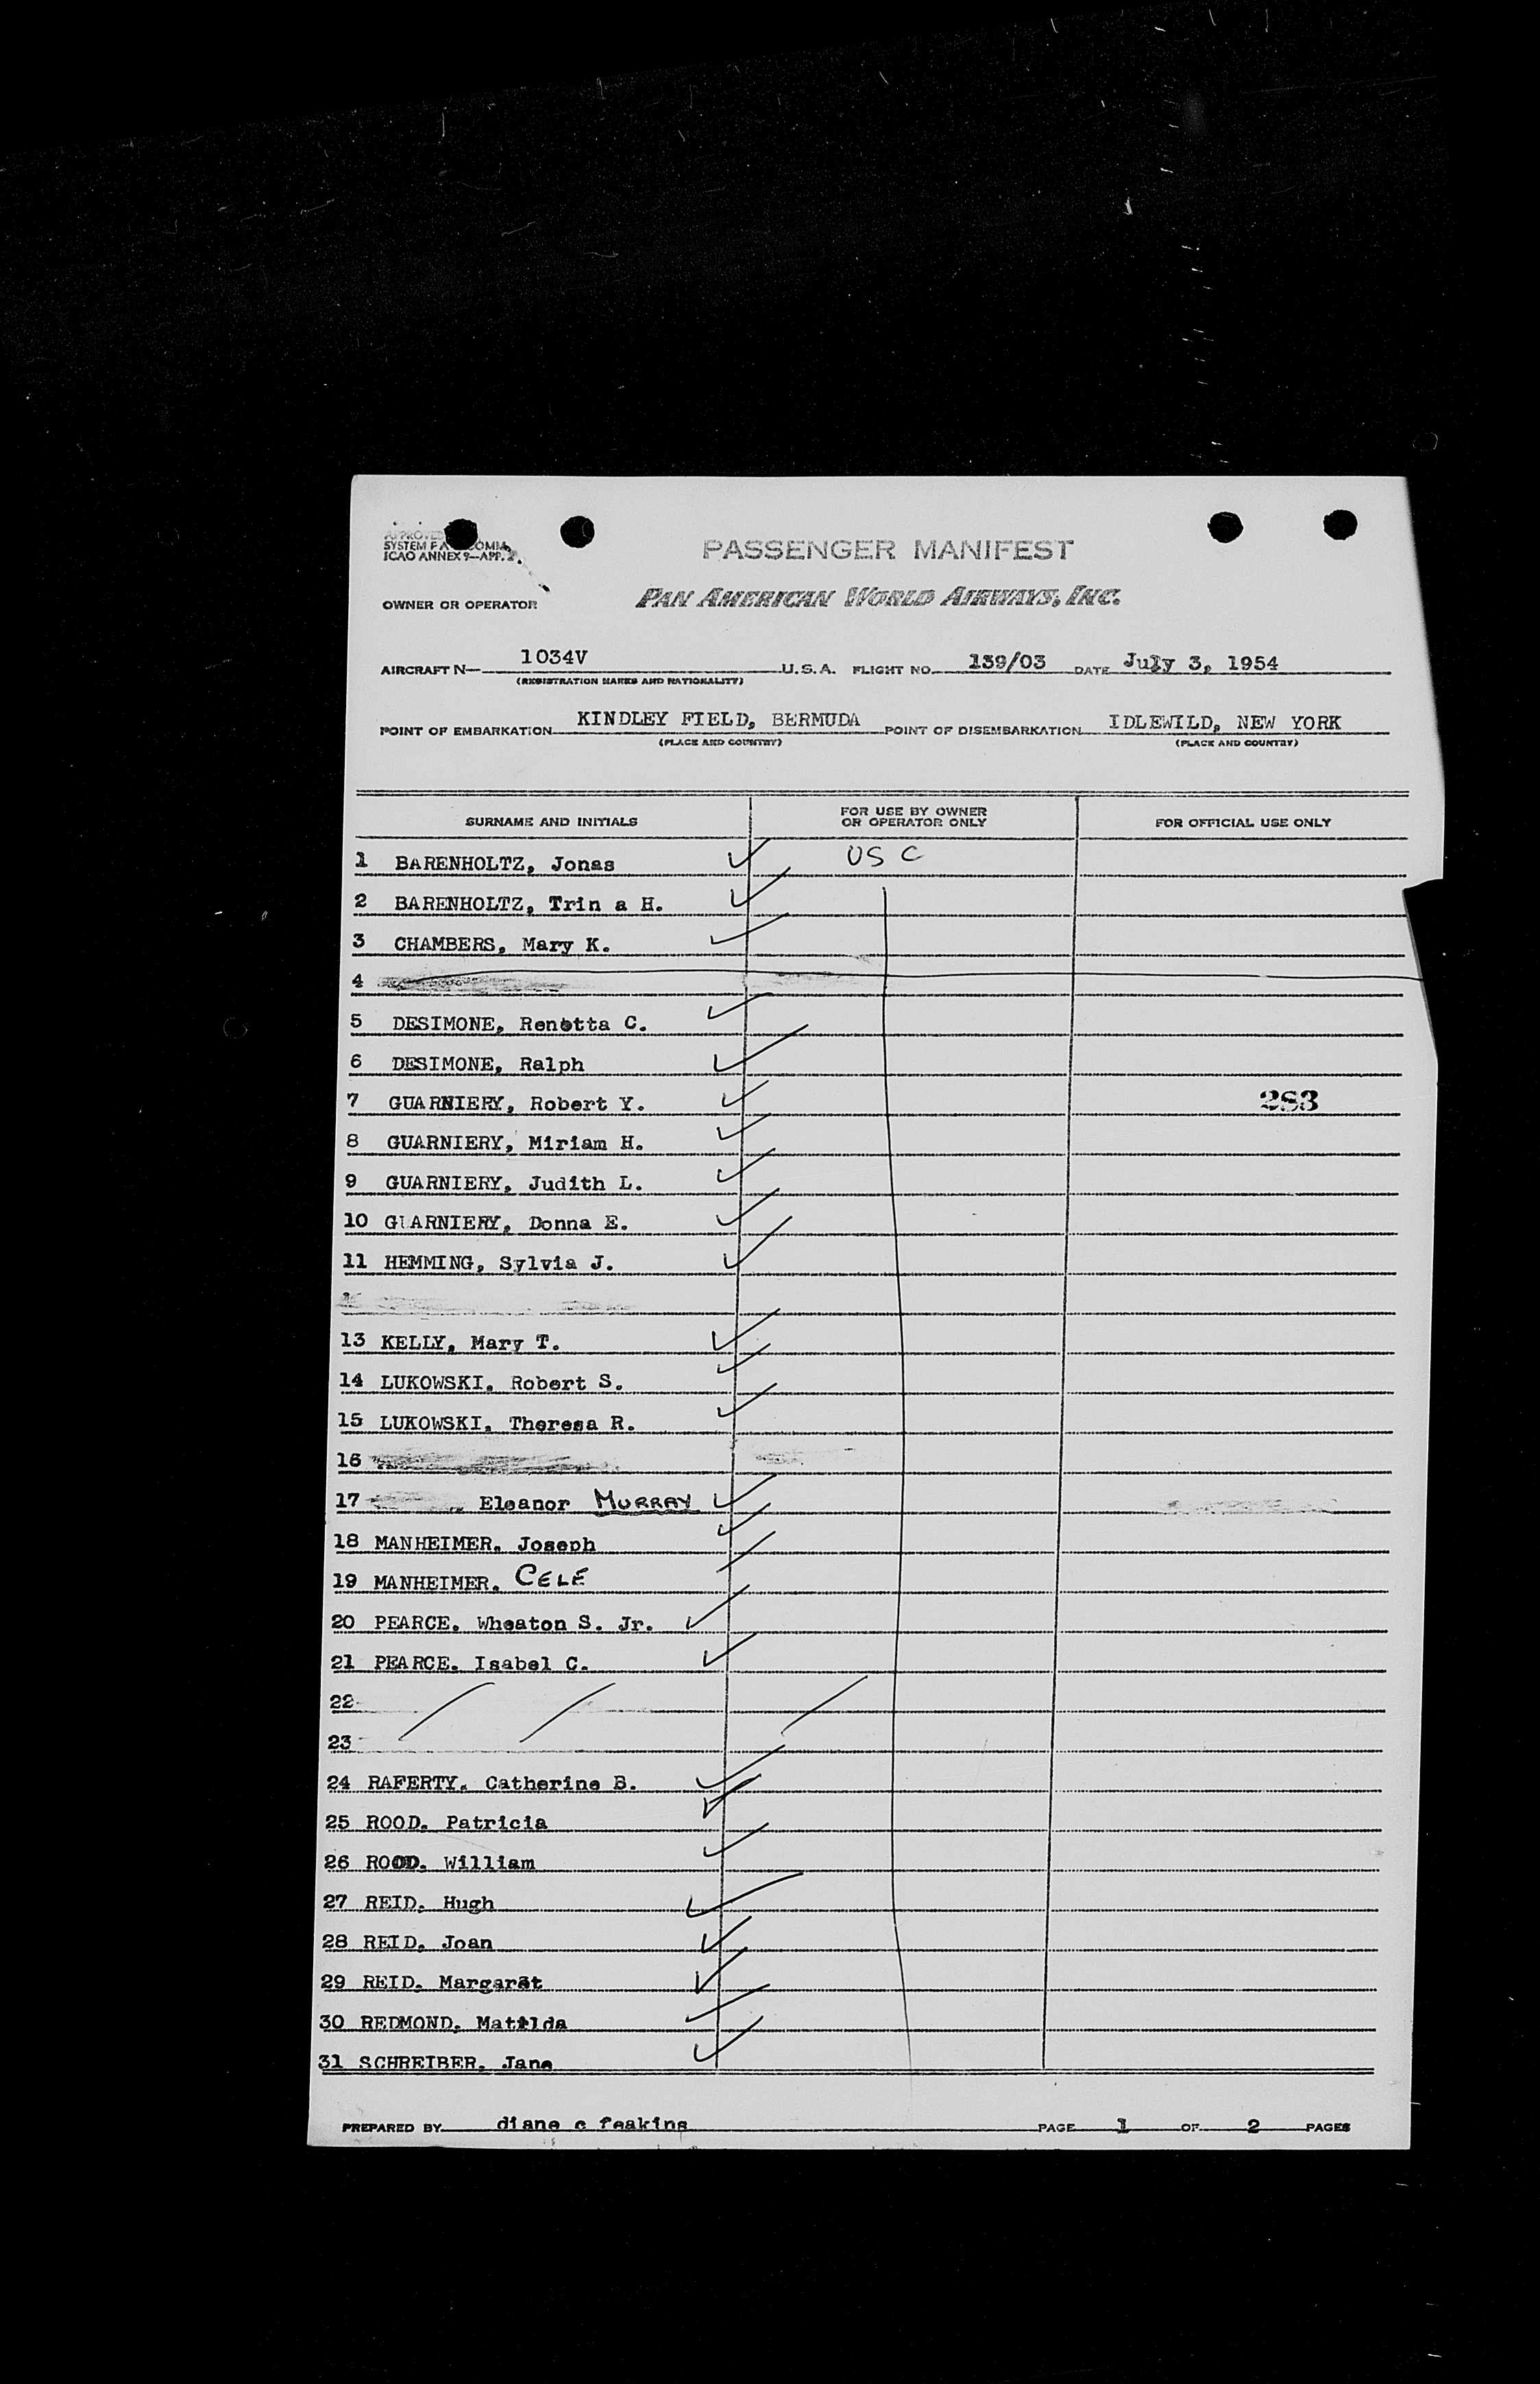 APPROVED
SYSTEM F A COMIA
ICAO ANNEX 9—APP. 2.
PASSENGER MANIFEST
OWNER OR OPERATOR
PAN AMERICAN WORLD AIRWAYS, INC.
AIRCRAFT N— 1034V U.S.A. FLIGHT NO. 139/03 DATE July 3, 1954
(REGISTRATION MARKS AND NATIONALITY)
POINT OF EMBARKATION KINDLEY FIELD, BERMUDA POINT OF DISEMBARKATION IDLEWILD, NEW YORK
(PLACE AND COUNTRY) (PLACE AND COUNTRY)
SURNAME AND INITIALS FOR USE BY OWNER OR OPERATOR ONLY FOR OFFICIAL USE ONLY
1 BARENHOLTZ, Jonas US C
2 BARENHOLTZ, Trin a H.
3 CHAMBERS, Mary K.
4
5 DESIMONE, Renetta C.
6 DESIMONE, Ralph
7 GUARNIERY, Robert Y. 283
8 GUARNIERY, Miriam H.
9 GUARNIERY, Judith L.
10 GUARNIERY, Donna E.
11 HEMMING, Sylvia J.
13 KELLY, Mary T.
14 LUKOWSKI, Robert S.
15 LUKOWSKI, Theresa R.
16
17 Eleanor MURRAY
18 MANHEIMER, Joseph
19 MANHEIMER, CELE
20 PEARCE, Wheaton S. Jr.
21 PEARCE, Isabel C.
22
23
24 RAFERTY, Catherine B.
25 ROOD, Patricia
26 ROOD, William
27 REID, Hugh
28 REID, Joan
29 REID, Margaret
30 REDMOND, Matilda
31 SCHREIBER, Jane
PREPARED BY diane c feakins PAGE 1 OF 2 PAGES